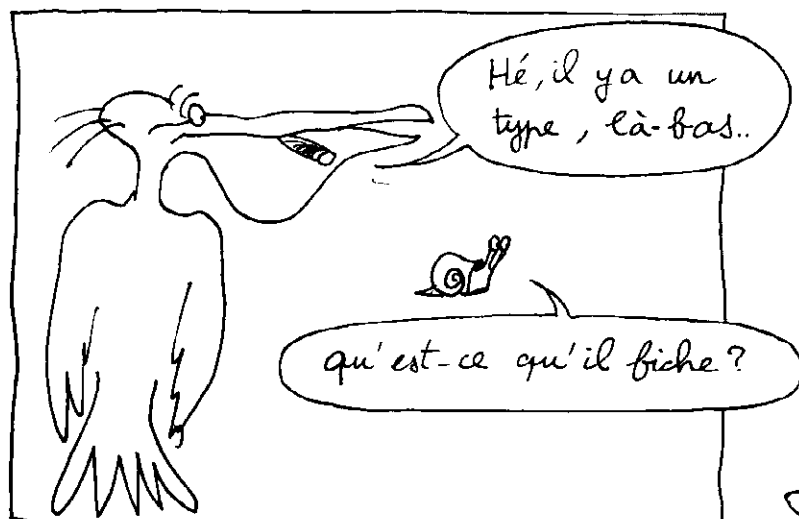 Hé, il y a un
type, là-bas..
qu'est-ce qu'il fiche?